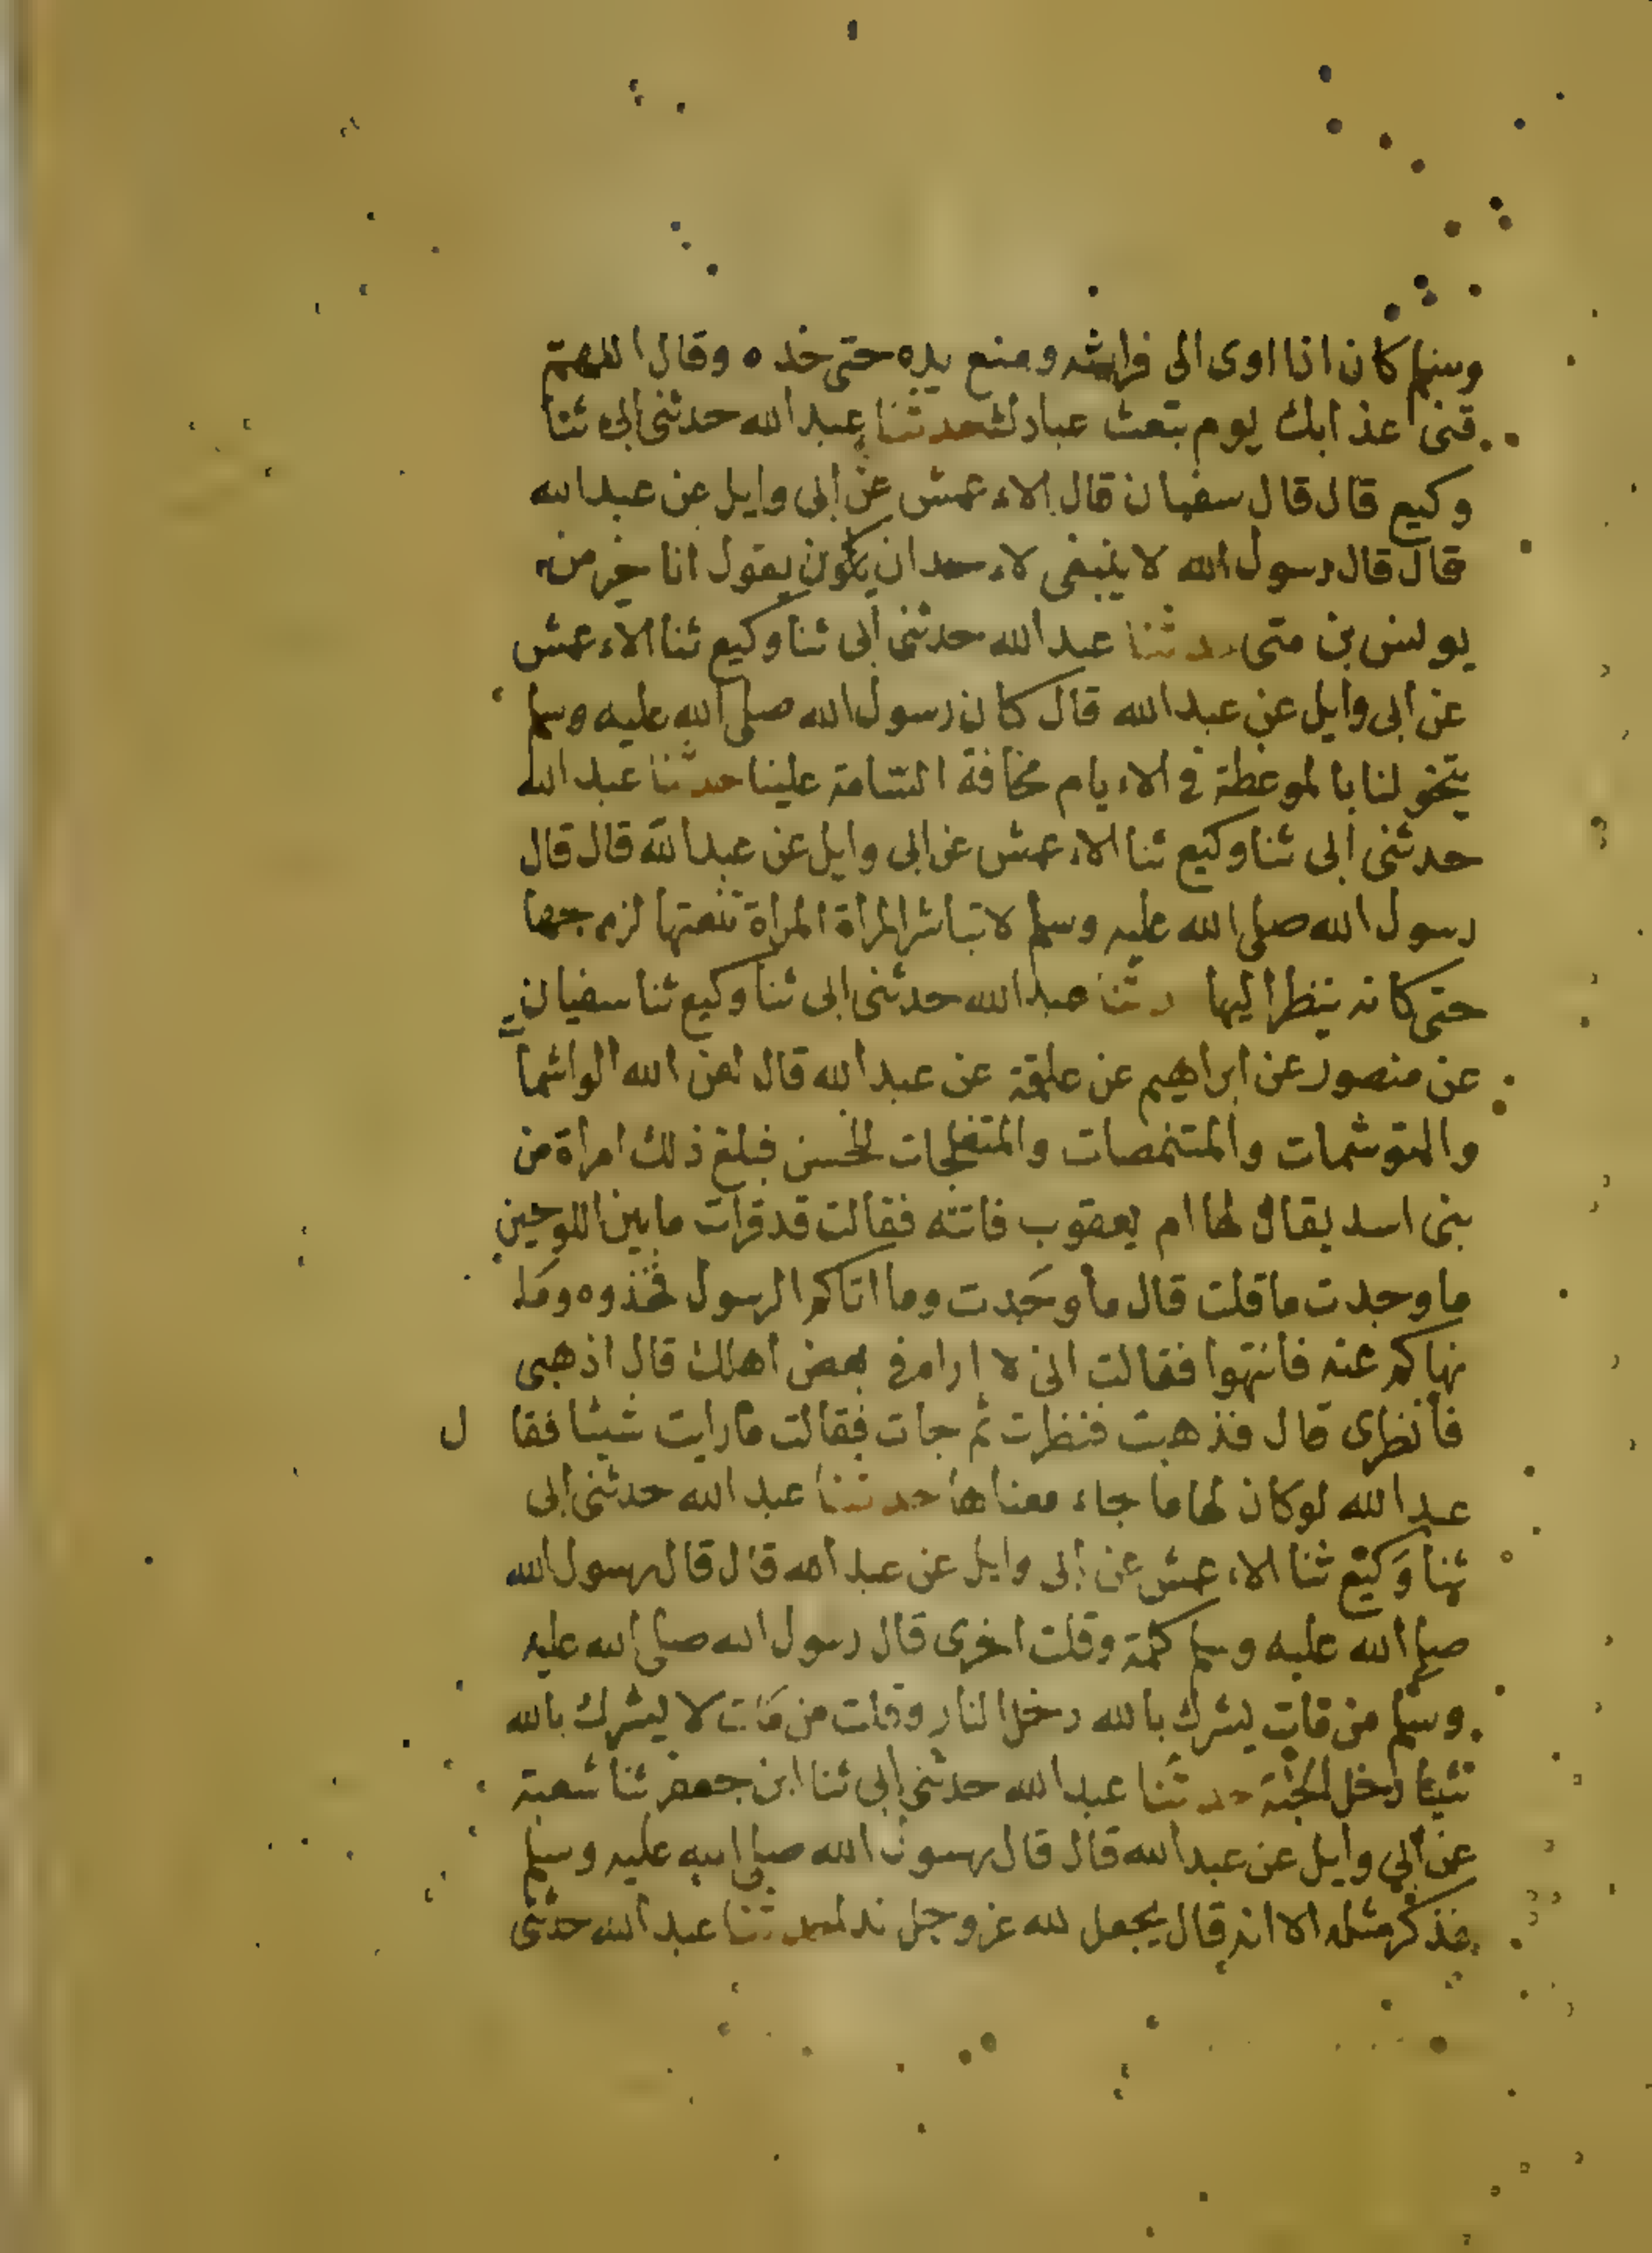 وسلم كان اذا اوى الى فراشه وضع يده حتى خده وقال اللهم
قنى عذابك يوم تبعث عبادك حدثنا عبد الله حدثنى ابى ثنا
وكيع قال قال سفيان قال الاءعمش عن ابى وايل عن عبد الله
قال قال رسول الله لا ينبغى لاءحد ان يكون يقول انا خير من
يونس بن متى حدثنا عبد الله حدثنى ابى ثنا وكيع ثنا الاءعمش
عن ابى وايل عن عبد الله قال كان رسول الله صلى الله عليه وسلم
يتخولنا بالموعظة في الاءيام مخافة السّامة علينا حدثنا عبد الله
حدثنى ابى ثنا وكيع ثنا الاءعمش عن ابى وايل عن عبد الله قال قال
رسول الله صلى الله عليه وسلم لا تباشر المراة المراة تنعتها لزوجها
حتى كانه ينظر اليها حدثنا عبد الله حدثنى ابى ثنا وكيع ثنا سفيان
عن منصور عن ابراهيم عن علقمة عن عبد الله قال لعن الله الواشمات
والمتوشمات والمتنمصات والمتفلجات للحسن فبلغ ذلك امراة من
بنى اسد يقال لها ام يعقوب فاتته فقالت قد قرات ما بين اللوحين
ما وجدت ما قلت قال ما وجدت وما اتاكم الرسول فخذوه وما
نهاكم عنه فانتهوا فقالت انى لا اراه في بعض اهلك قال اذهبى
فانظرى قال فذهبت فنظرت ثم جات فقالت ما رايت شيئا فقا ل
عبد الله لو كان لها ما جاء معناها حدثنا عبد الله حدثنى ابى
ثنا وكيع ثنا الاءعمش عن ابى وايل عن عبد الله قال قال رسول الله
صلى الله عليه وسلم كلمة وقلت اخرى قال رسول الله صلى الله عليه
وسلم من مات يشرك بالله دخل النار وقلت من مات لا يشرك بالله
شيئا دخل الجنة حدثنا عبد الله حدثنى ابى ثنا ابن جعفر ثنا شعبة
عن ابي وايل عن عبد الله قال قال رسول الله صلى الله عليه وسلم
فذكر مثله الا انه قال يجعل لله عز وجل ندا حدثنا عبد الله حدثنى